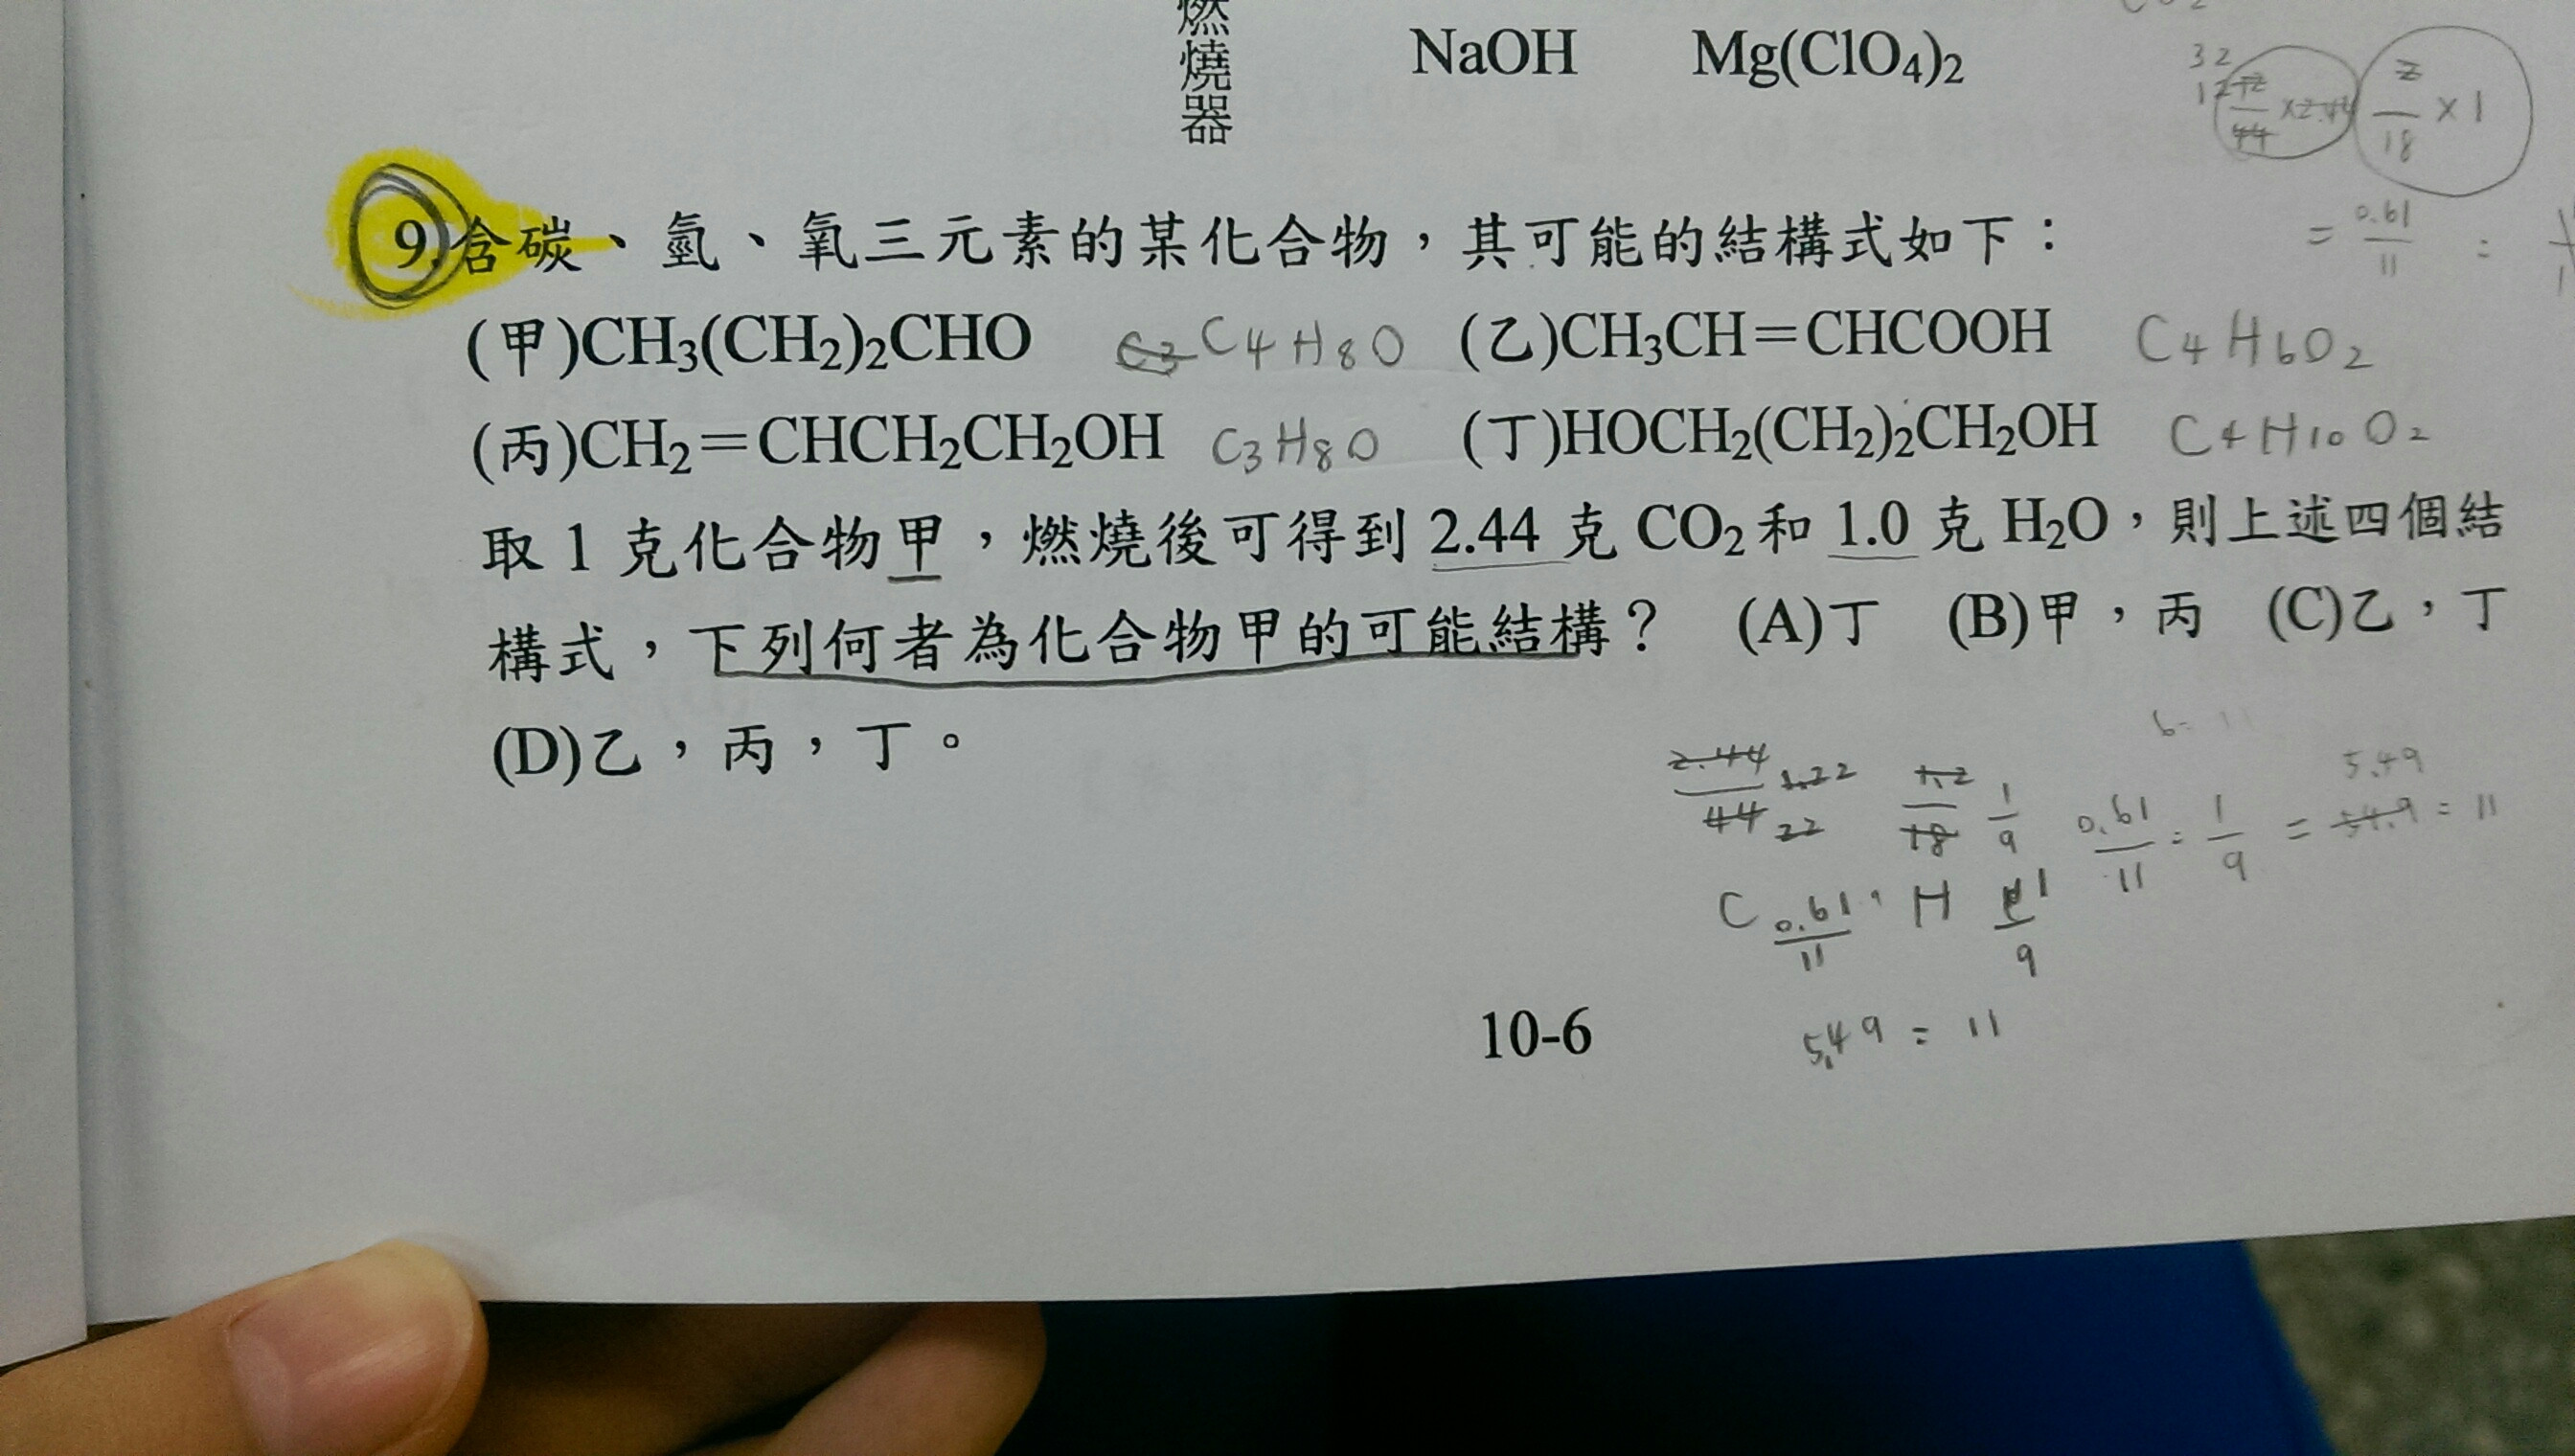 燃燒器
NaOH Mg(ClO4)2
9.含碳、氫、氧三元素的某化合物，其可能的結構式如下：
(甲)CH3(CH2)2CHO C4H8O (乙)CH3CH=CHCOOH C4H6O2
(丙)CH2=CHCH2CH2OH C3H8O (丁)HOCH2(CH2)2CH2OH C4H10O2
取 1 克化合物甲，燃燒後可得到 2.44 克 CO2 和 1.0 克 H2O，則上述四個結
構式，下列何者為化合物甲的可能結構？ (A)丁 (B)甲，丙 (C)乙，丁
(D)乙，丙，丁。
2.44/44 1.22/22 1/9 0.61/11 : 1/9 = 5.49 : 11
C 0.61/11 H 1/9
5.49 : 11
10-6